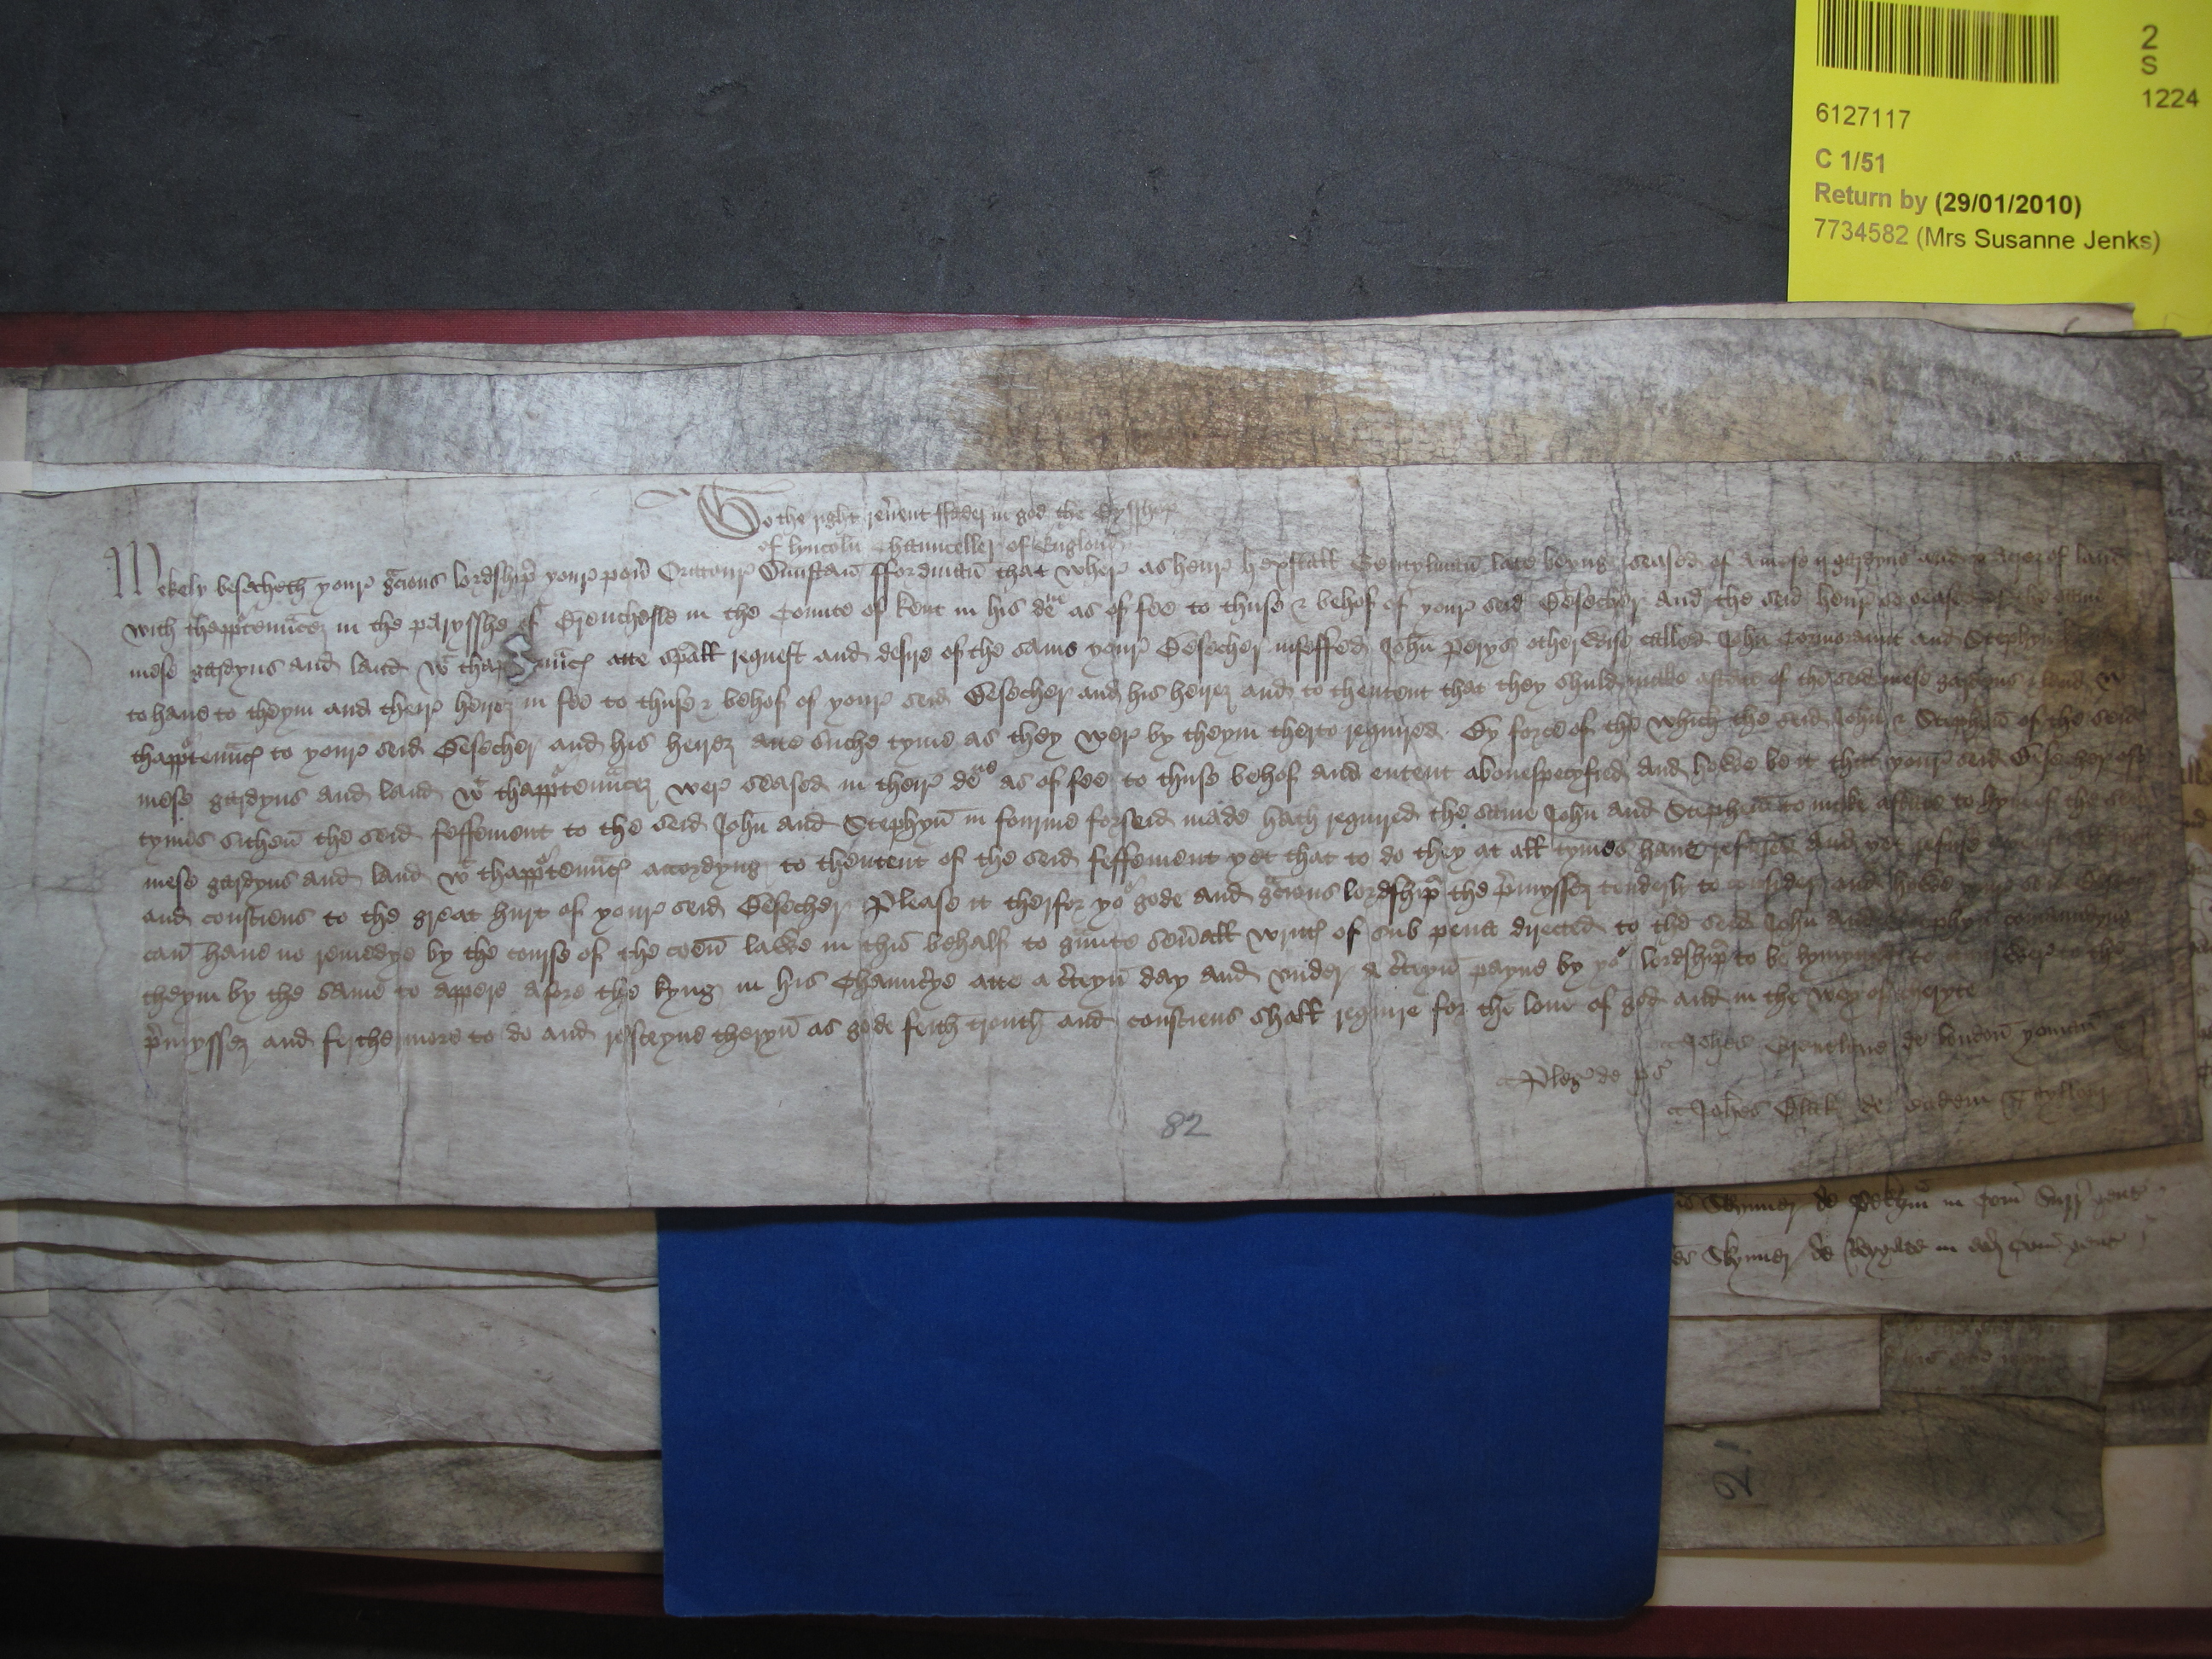 2
S
1224
6127117
C 1/51
Return by (29/01/2010)
7734582 (Mrs Susanne Jenks)
To the right reu'ent ffader in god the Bysshop
of lyncoln Chaunceller of Englond
Mekely besecheth your gracious lordship your pou' Oratour Dunstan that wher as henr' hexstall Gentylman late beyng seased of a mese ij gardyns and acrez of land
with thapp'tenaucez in the parysshe of in the Counte of Kent in his deme as of fee to thuse & behof of your seid Besecher and the seid henr' so seased of the same
mese gardyns and land wt atte sp'all request and desire of the same your Besecher infeffed John Perys otherwise called John Cormoraunt and Stephyn
to haue to theym and their heirez in fee to thuse & behof of your seid Besecher and his heirez and to thentent that they shuld make astate of the seid mese gardyns & land wt
thapp'tenaunc' to your seid Besecher and his heirez atte suche tyme as they wer by theym therto required By force of the which the seid John & Stephyn of the seid
mese gardyns and land wt thapp'tenaucez wer seased in their demes as of fee to thuse behof and entent abouespecyfied and howe be it that your seid Besecher ofte
tymes sithen the seid feffement to the seid John and Stephyn in fourme forseid made hath required the same John and Stephyn to make astate to hym of the seid
mese gardyns and land wt thapp'tenaunc' accordyng to thentent of the seid feffement yet that to do they at all tymes haue refused and yet refuse
and consciens to the great hurt of your seid Besecher Please it therfor yor gode and gracious lordship the p'myssez tenderly to consider and howe your seid Besecher
can haue no remedye by the course of the coen lawe in this behalf to graunte seu'all writt' of sub pena directed to the seid John and Stephyn comaundyng
theym by the same to appere afore the kyng in his Chaunc'ye atte a c'teyn day and vnder a c'teyn payne by yor lordship to be lymyted to answer to the
p'myssez and ferthermore to do and resceyue theryn as gode feith trouth and consciens shall require for the loue of god and in the wey of cheryte
Pleg' de ps'
Joh'es de london yoman
Joh'es Blak de eadem
82
Skynner de in Com' Surr' gent
Skynner de Reygate in Com' gent
21